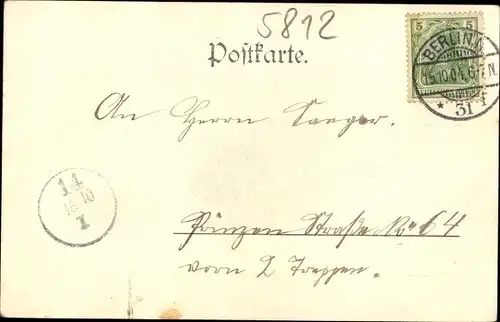 5812
Postkarte.
5 5
BERLIN N.
15.10.04. 6-7 N.
* 31 f
An Herrn Saeger.
14
15 10
1
Prinzen Straße No 64
vorn 2 Treppen.